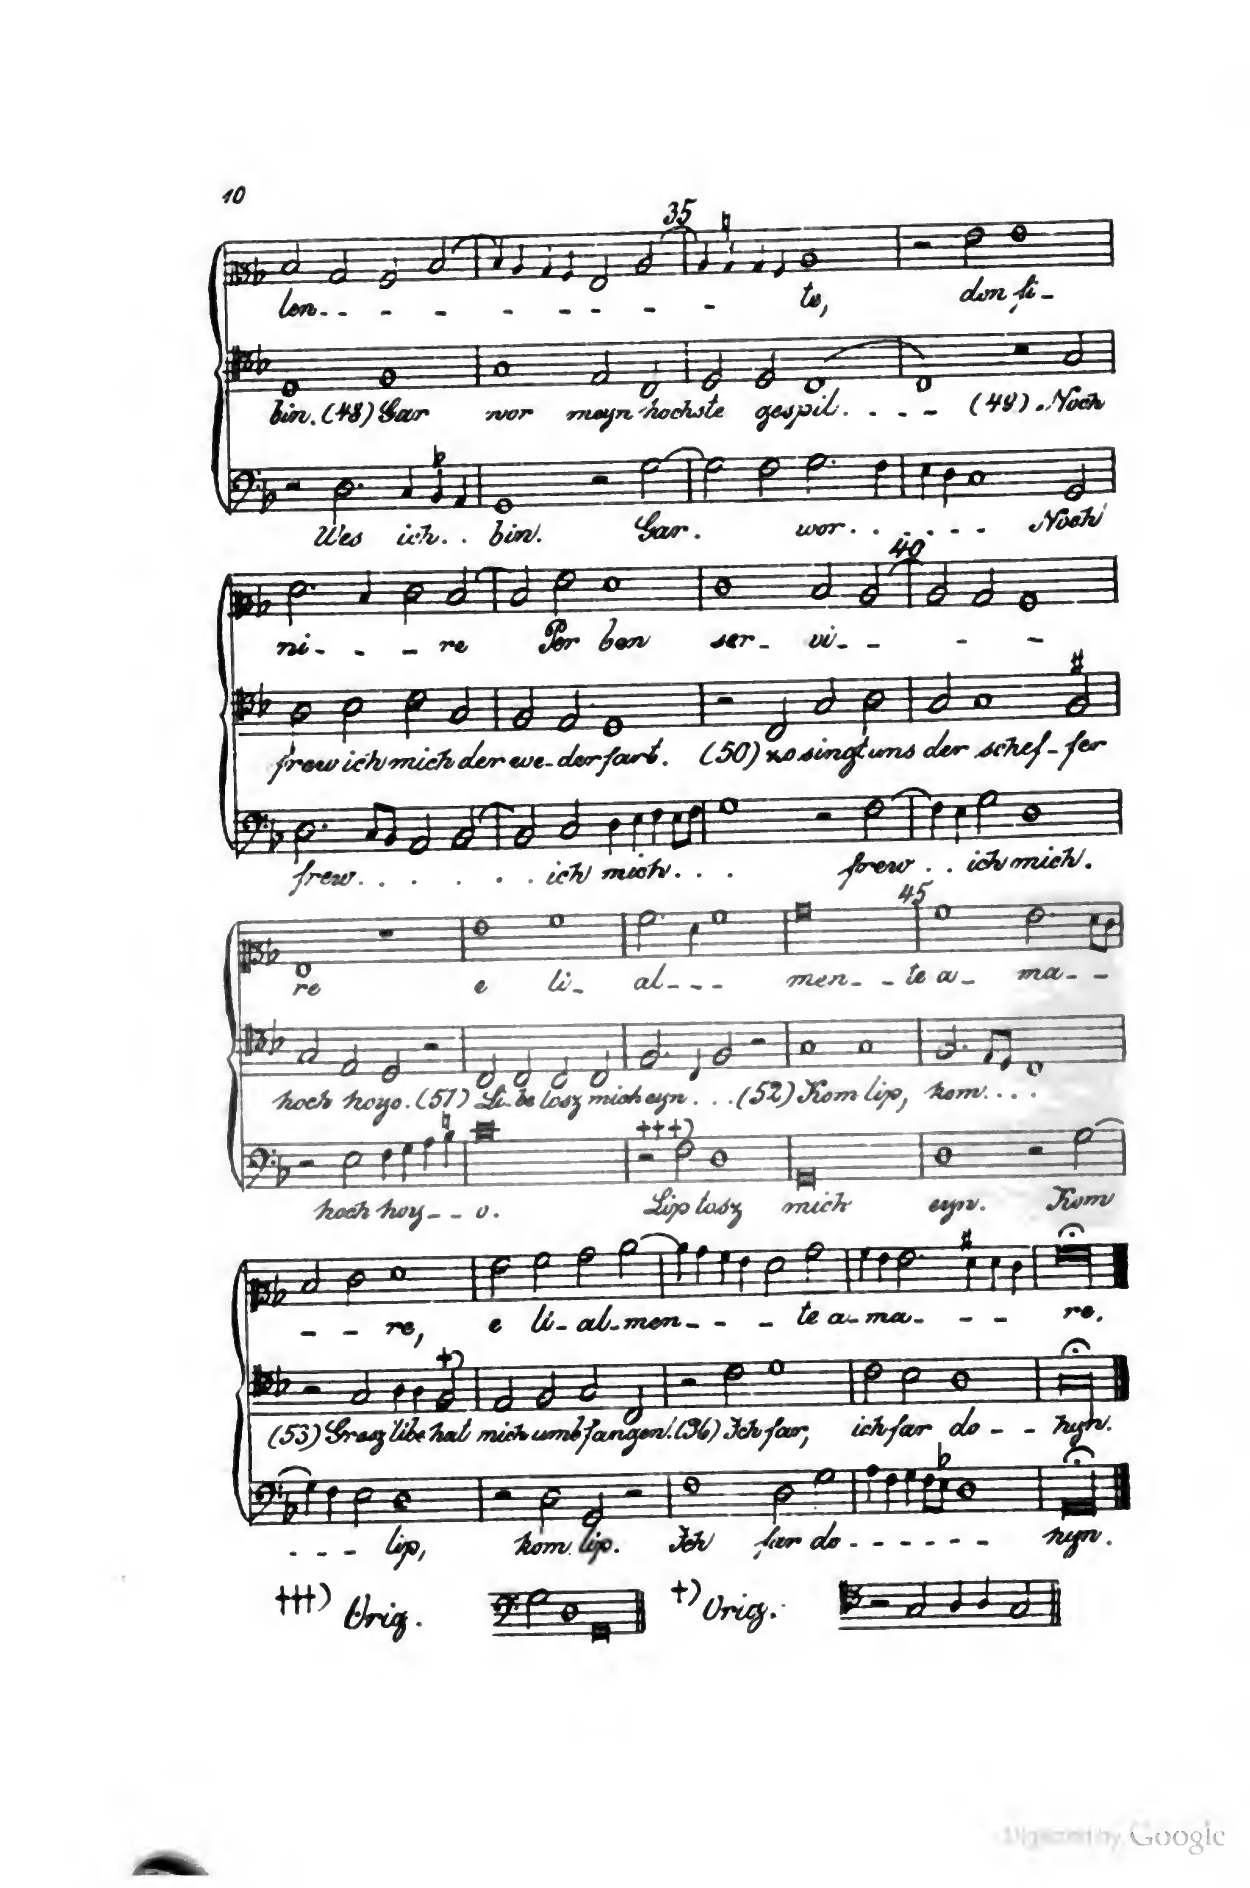 10
35
len - - - - - - - - te, den fi -
bin. (48) Gar vor meyn hochste gespil. . . - (49) Noch
Wes ich. . bin. Gar. wor. . . . . . Noch
40
ni - - - re Per ben ser - vi - - - -
frew ich mich der wederfart. (50) so singt uns der schef - fer
frew. . . . . . . ich mich. . . frew . . ich mich.
45
re e li - al - - - men - - te a - ma - -
hoch hoyo. (51) Libe losz mich eyn . . . (52) Kom lip, kom. . . .
†††)
hoch hoy - - o. Lip losz mich eyn. Kom
- - re, e li - al - men - - - te a - ma - - - re.
†)
(53) Grosz libe hat mich umbfangen. (96) Ich far, ich far do - - hyn.
- - - lip, kom lip. Ich far do - - - - - - hyn.
†††) Orig. †) Orig.
Digitized by Google